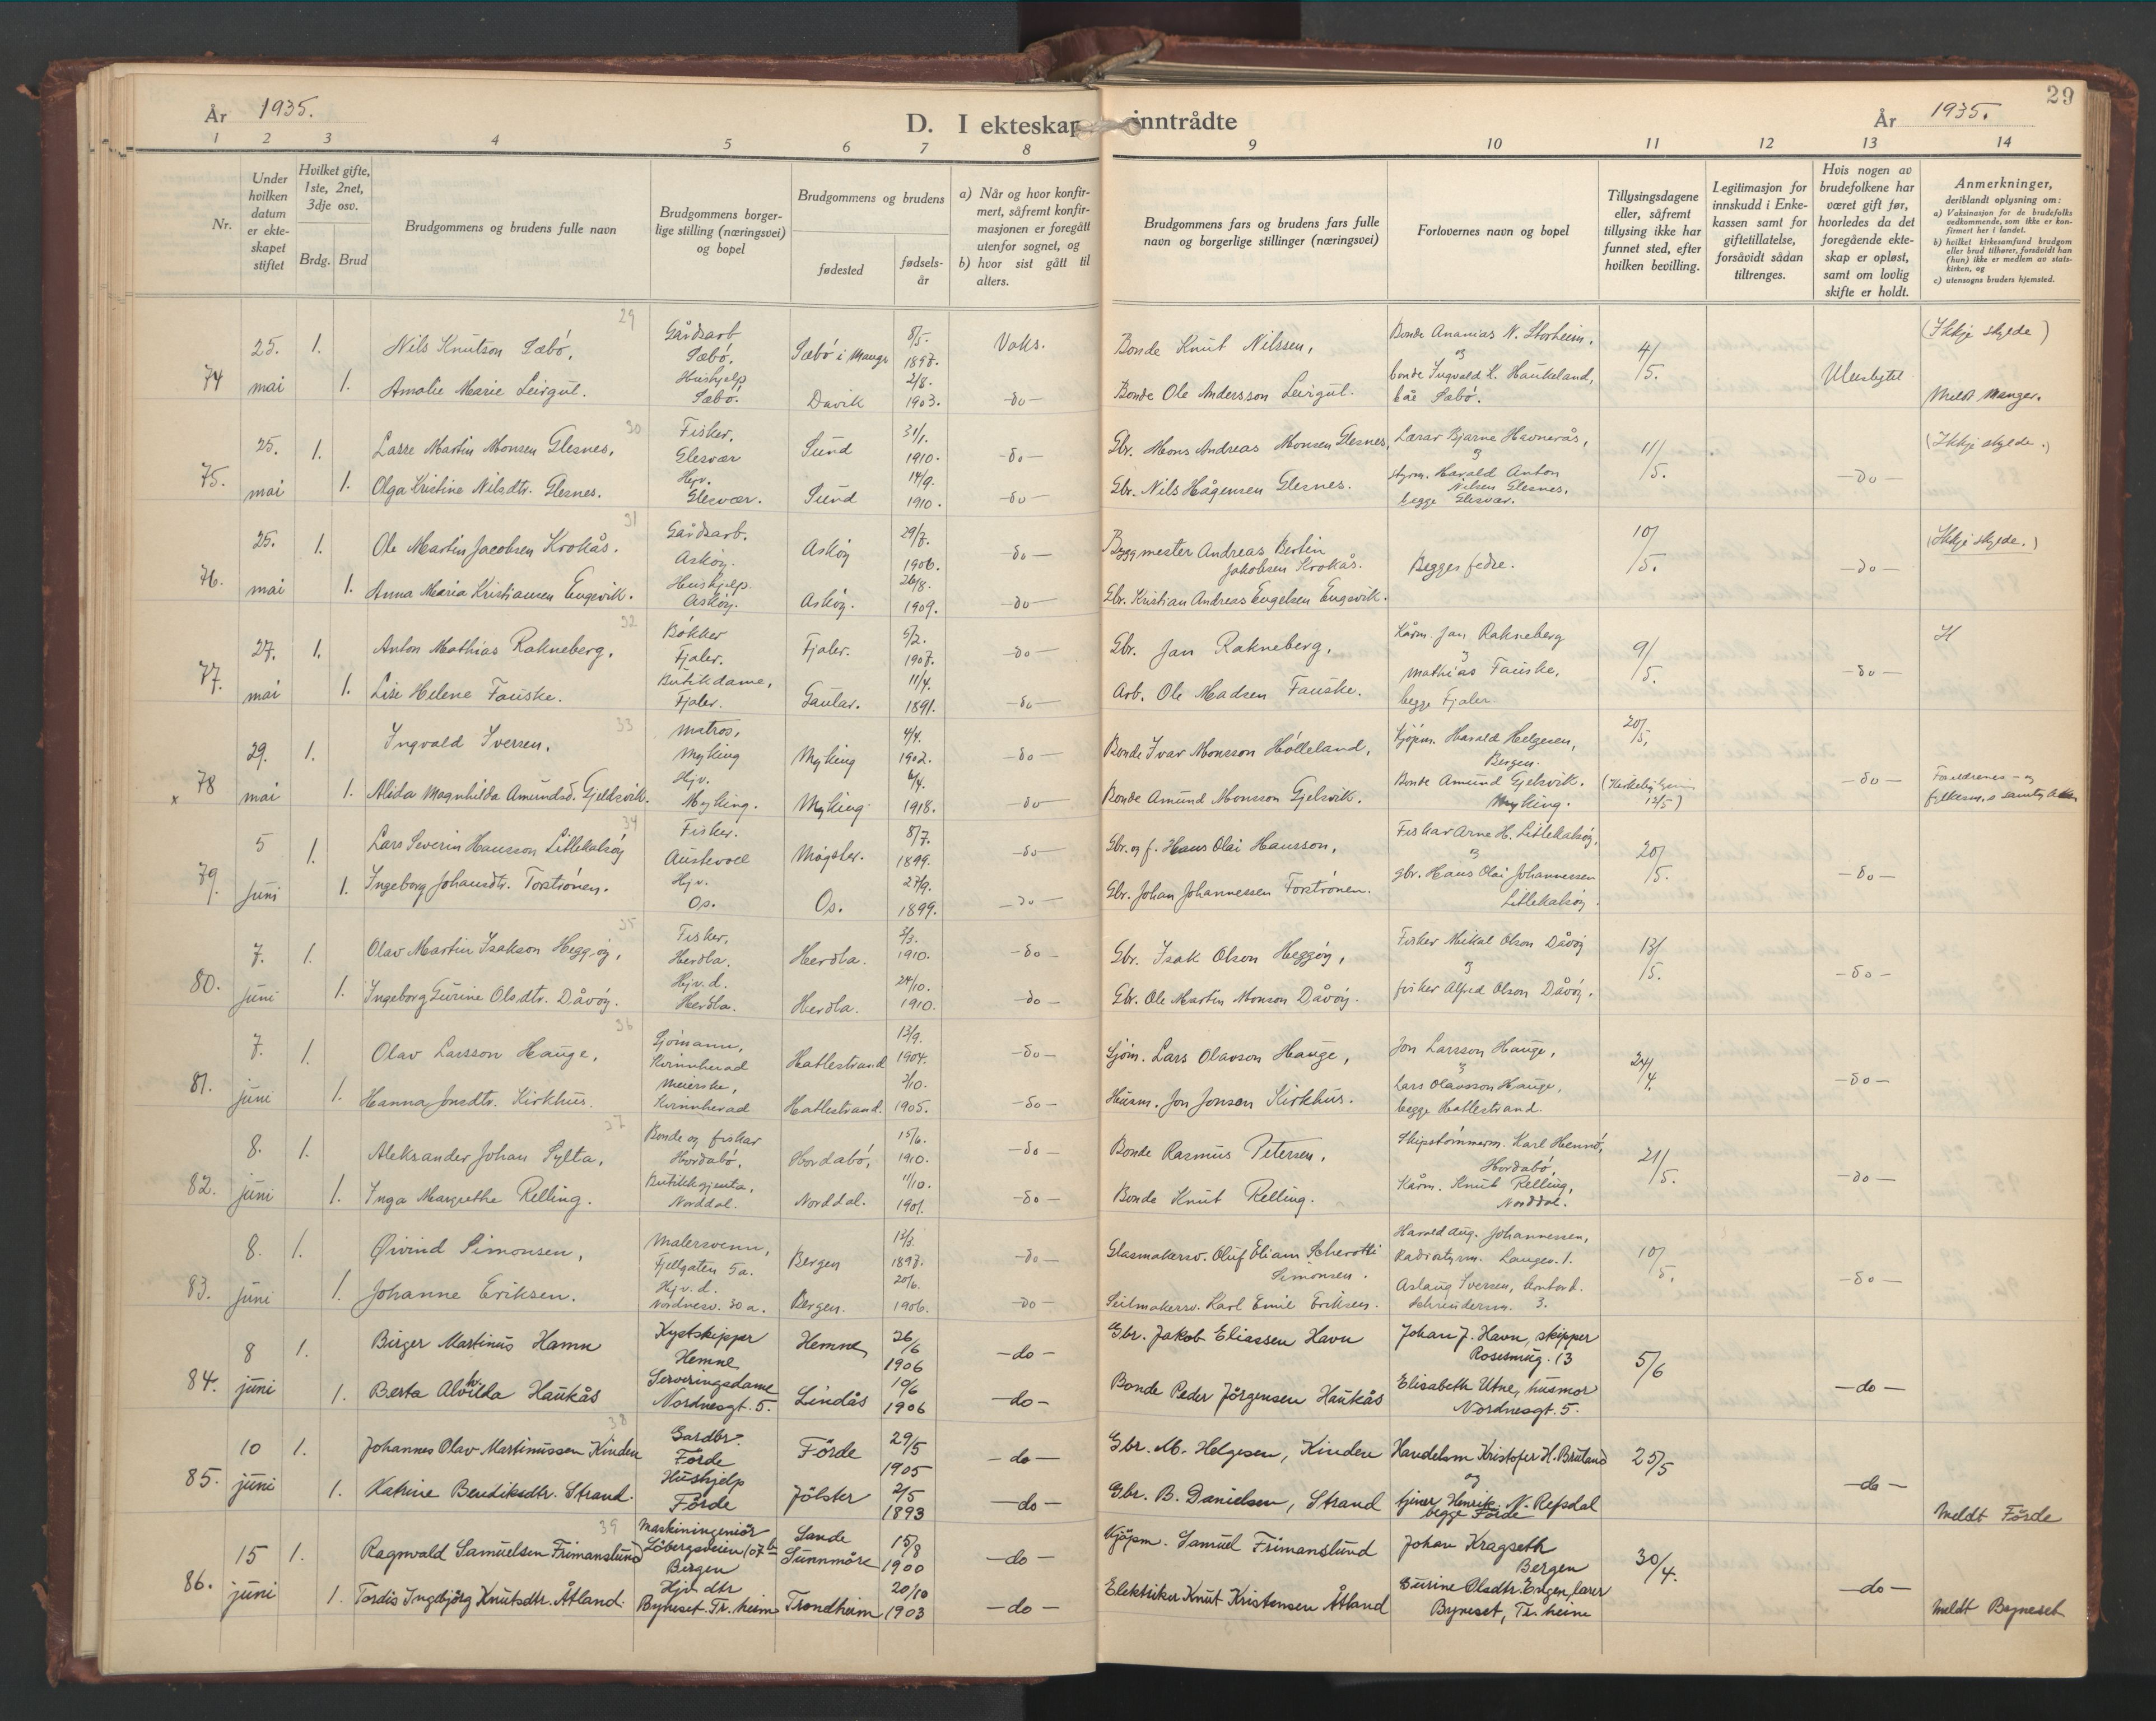 År 1935.
D. I ekteskap inntrådte
År 1935.
29
1 2 3 4 5 6 7 8 9 10 11 12 13 14
Nr.
Under hvilken datum er ekteskapet stiftet
Hvilket gifte, 1ste, 2net, 3dje osv.
Brdg. Brud
Brudgommens og brudens fulle navn
Brudgommens borgerlige stilling (næringsvei) og bopel
Brudgommens og brudens
fødested
fødselsår
a) Når og hvor konfirmert, såfremt konfirmasjonen er foregått utenfor sognet, og
b) hvor sist gått til alters.
Brudgommens fars og brudens fars fulle navn og borgerlige stillinger (næringsvei)
Forlovernes navn og bopel
Tillysingsdagene eller, såfremt tillysing ikke har funnet sted, efter hvilken bevilling.
Legitimasjon for innskudd i Enkekassen samt for giftetillatelse, forsåvidt sådan tiltrenges.
Hvis nogen av brudefolkene har været gift før, hvorledes da det foregående ekteskap er opløst, samt om lovlig skifte er holdt.
Anmerkninger, deriblandt oplysning om:
a) Vaksinasjon for de brudefolks vedkommende, som ikke er konfirmert her i landet.
b) hvilket kirkesamfund brudgom eller brud tilhører, forsåvidt han (hun) ikke er medlem av statskirken, og
c) utensogns bruders hjemsted.
29
74 25. mai 1. Nils Knutson Sæbó, Gårdsarb Sæbó, Sæbó i Mangr 8/5. 1897. Vaks. Bonde Knut Nilssen, Bonde Ananias N. Storheim, og 4/5. (Ikkje skylde)
1. Amalie Marie Leirgul. Hushjelp Sæbó. Davik 2/8. 1903. -do- Bonde Ole Andersson Leirgul. bonde Ingvald K. Haukeland, båe Sæbó. Meldt Manger.
30
75. 25. mai 1. Lasse Martin Monsen Glesnes, Fisker, Glesvær Sund 31/1. 1910. -do- Gbr. Mons Andreas Monsen Glesnes, Lærar Bjarne Havnerås, og 11/5. -do- (Ikkje skylde.)
1. Olga Kristine Nilsdtr. Glesnes. Hjv. Glesvær. Sund 14/9. 1910. -do- Gbr. Nils Hågensen Glesnes. styrm. Harald Anton Nilsen Glesnes, begge Glesvær.
31
76. 25. mai 1. Ole Martin Jacobsen Krokås. Gårdsarb. Askóy. Askóy 29/7. 1906. -do- Byggmester Andreas Bertin Jakobsen Krokås. Begges fedre. 10/5. -do- (Ikkje skylde.)
1. Anna Maria Kristiansen Eugsvik. Hushjelp. Askóy. Askóy. 26/8. 1909. -do- Gbr. Kristian Andreas Engelsen Eugsvik.
32
77. 27. mai 1. Anton Mathias Rakneberg, Bókker Fjaler. Fjaler. 5/2. 1907. -do- Gbr. Jan Rakneberg, Kårm. Jan Rakneberg og 9/5. -do- H
1. Lise Helene Fauske. Butikdame, Fjaler. Gaular. 11/4. 1891. -do- Arb. Ole Madsen Fauske. Mathias Fauske, begge Fjaler
33
x 78 29. mai 1. Ingvald Iversen, Matros, Myking Myking 4/4. 1902. -do- Bonde Ivar Monsson Hólleland, Kjópm. Harald Helgesen, Bergen. 20/5. -do-
1. Alida Magnhilda Amundsd. Gjeldsvik. Hjv. Myking. Myking. 6/4. 1918. -do- Bonde Amund Monsson Gjelsvik. Bonde Amund Gjelsvik. Myking.
34
79. 5 juni 1. Lars Severin Hansson Litlekalsóy Fisker. Austevoll Mógster. 8/7. 1899. -do- Gbr. og f. Hans Olai Hansson, Fiskar Arne H. Litlekalsóy, og 20/5. -do-
1. Ingeborg Johansdtr. Torstrónen. Hjv. Os. Os. 27/9. 1899. -do- Gbr. Johan Johannessen Torstrónen. gbr. Hans Olai Johannessen Litlekalsóy.
35
80. 7. juni 1. Olav Martin Isakson Heggóy, Fisker, Herdla. Herdla. 3/3. 1910. -do- Gbr. Isak Olson Heggóy, Fisker Mikal Olson Dåvóy og 13/5. -do-
1. Ingeborg Gurine Olsdtr. Dåvóy. Hjv. d. Herdla. Herdla. 24/10. 1910. -do- Gbr. Ole Martin Monson Dåvóy. fisker Alfred Olson Dåvóy.
36
81. 7. juni 1. Olav Larsson Hauge, Sjómann, Kvinnherad Hatlestrand 13/9. 1904. -do- Sjóm. Lars Olavson Hauge, Jon Larsson Hauge, og 24/4. -do-
1. Hanna Jonsdtr. Kirkhus. Meierske, Kvinnherad Hatlestrand. 2/10. 1905. -do- Husm. Jon Jonson Kirkhus. Lars Olavsson Hauge, begge Hatlestrand.
37
82. 8. juni 1. Aleksander Johan Sylta, Bonde og fiskar Hordabó, Hordabó, 15/6. 1910. -do- Bonde Rasmus Petersen, Skipstómmerm. Karl Hennó, Hordabó, 21/5. -do-
1. Inga Margrethe Relling. Butikkgjenta, Norddal. Norddal. 11/10. 1901. -do- Bonde Knut Relling. Kårm. Knut Relling, Norddal.
83. 8. juni 1. Øivind Simonsen, Malersvenn, Fjellgaten 5a. Bergen 13/3. 1897. -do- Glasmakersv. Oluf Eliam Scherotti Simonsen. Harald Aug. Johannessen, Radiostyrm. Langev. 1. 10/5. -do-
1. Johanne Eriksen. Hjv. d. Nordnesv. 30 a. Bergen. 20/6. 1906. -do- Seilmakersv. Karl Emil Eriksen. Aslaug Iversen, kontord. 3.
84. 8 juni 1. Birger Martinus Hamn Kystskipper Hemne Hemne 26/6 1906 -do- Gbr. Jakob Eliassen Havn Johan J. Havn, skipper Rosesmug. 13 5/6 -do-
1. Berta Alvhilda Haukås Serveringsdame Nordnesgt. 5. Lindås 10/6 1906 -do- Bonde Peder Jörgensen Haukås Elisabeth Utne, husmor Nordnesgt. 5.
38
85. 10 juni 1. Johannes Olav Martinussen Kinden Gardbr. Förde Förde 29/5 1905 -do- Gbr. M. Helgesen, Kinden Handelsm Kristofer H. Bruland og 25/5 -do-
1. Katrine Bendiksdtr. Strand. Hushjelp Förde Jölster 2/5 1893 -do- Gbr. B. Danielsen, Strand Henrik N. Refsdal begge Förde Meldt Förde
39
86. 15 juni 1. Ragnvald Samuelsen Frimanslund Maskiningeniör Löbergsveien 107b Bergen Sande Sunnmöre 15/8 1900 -do- Kjöpm. Samuel Frimanslund Johan Kragseth Bergen 30/4. -do-
1. Tordis Ingebjörg Knutsdtr. Åtland. Hjv. dtr Byneset. Tr.heim Trondheim 20/10 1903 -do- Elektriker Knut Kristensen Åtland Gurine Olsdtr. Engen, lærer Byneset, Tr.heim Meldt Byneset